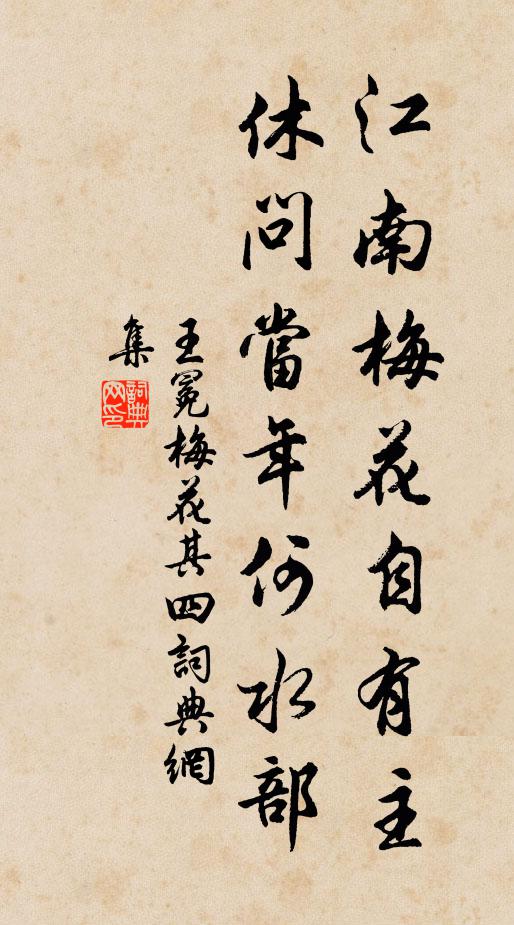 江南梅花自有主
休問當年何水部
王冕梅花其四詞典網
集
詞典
网印